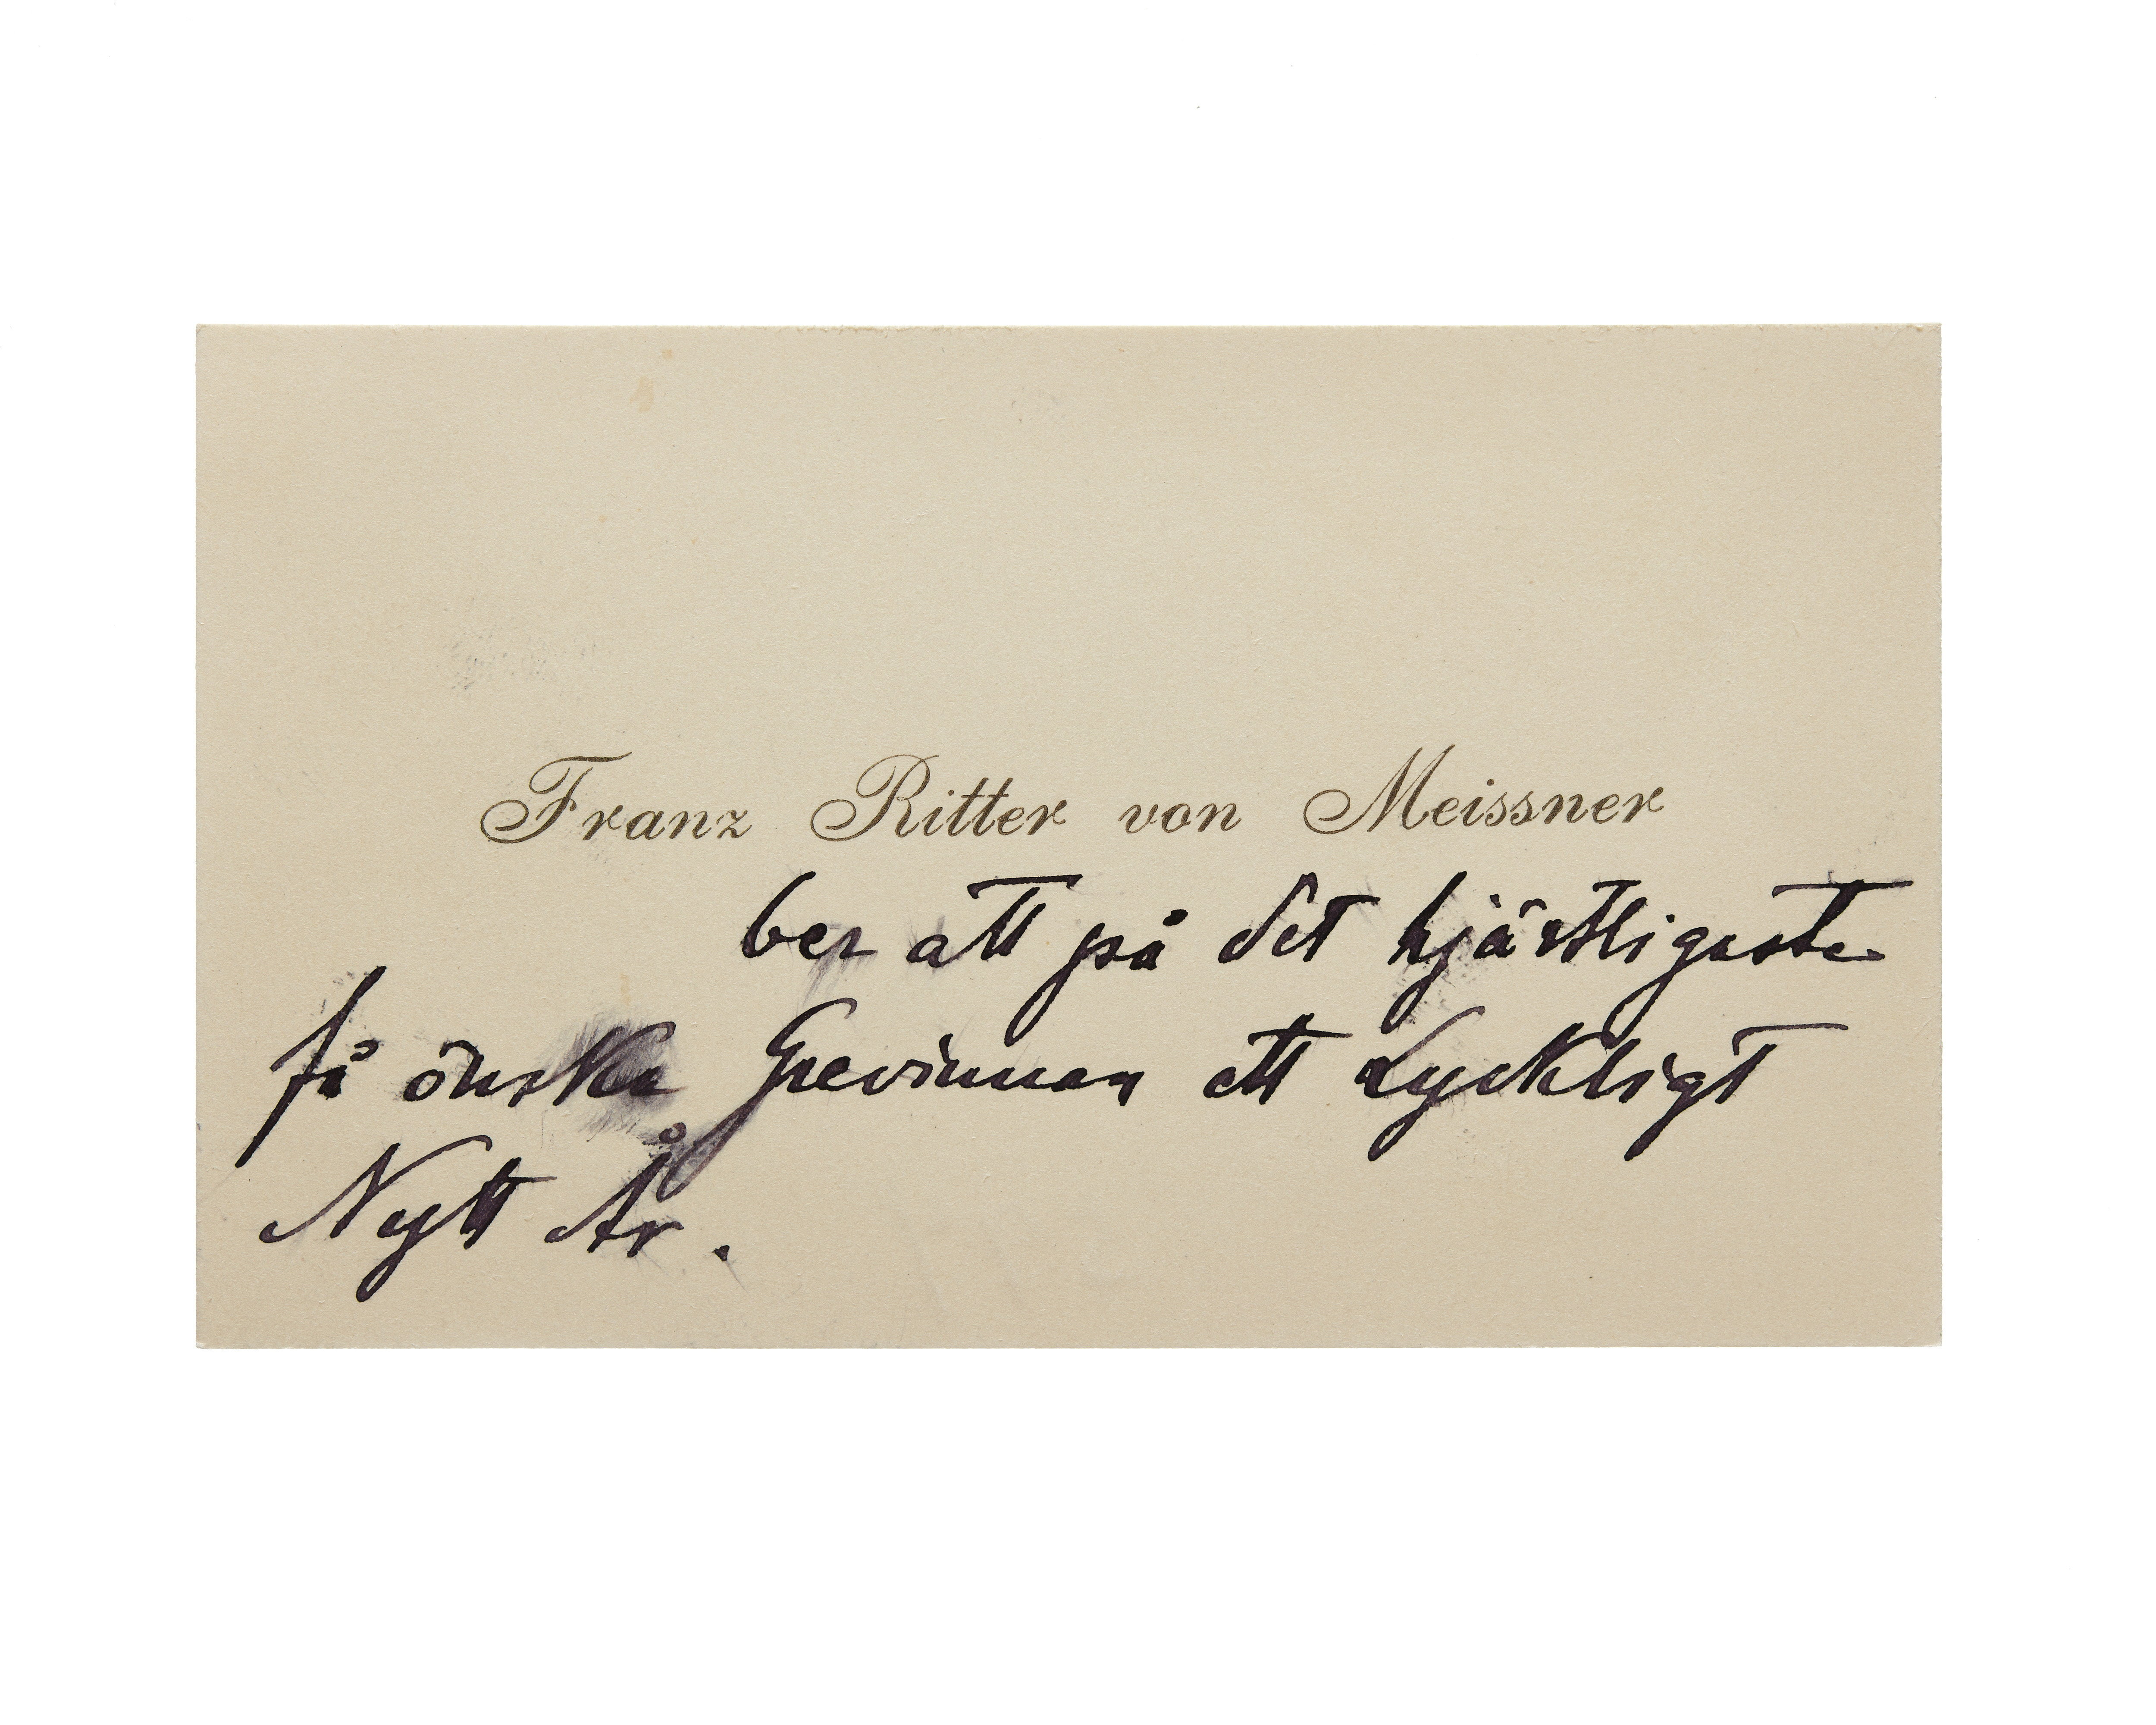 Franz Ritter von Meissner
ber att på det hjärtligaste
få önska Grevinnan ett Lyckligt
Nytt År.